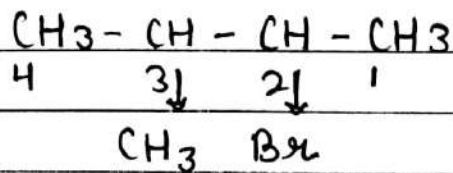 CH3 - CH - CH - CH3
4 3↓ 2↓ 1
CH3 Br